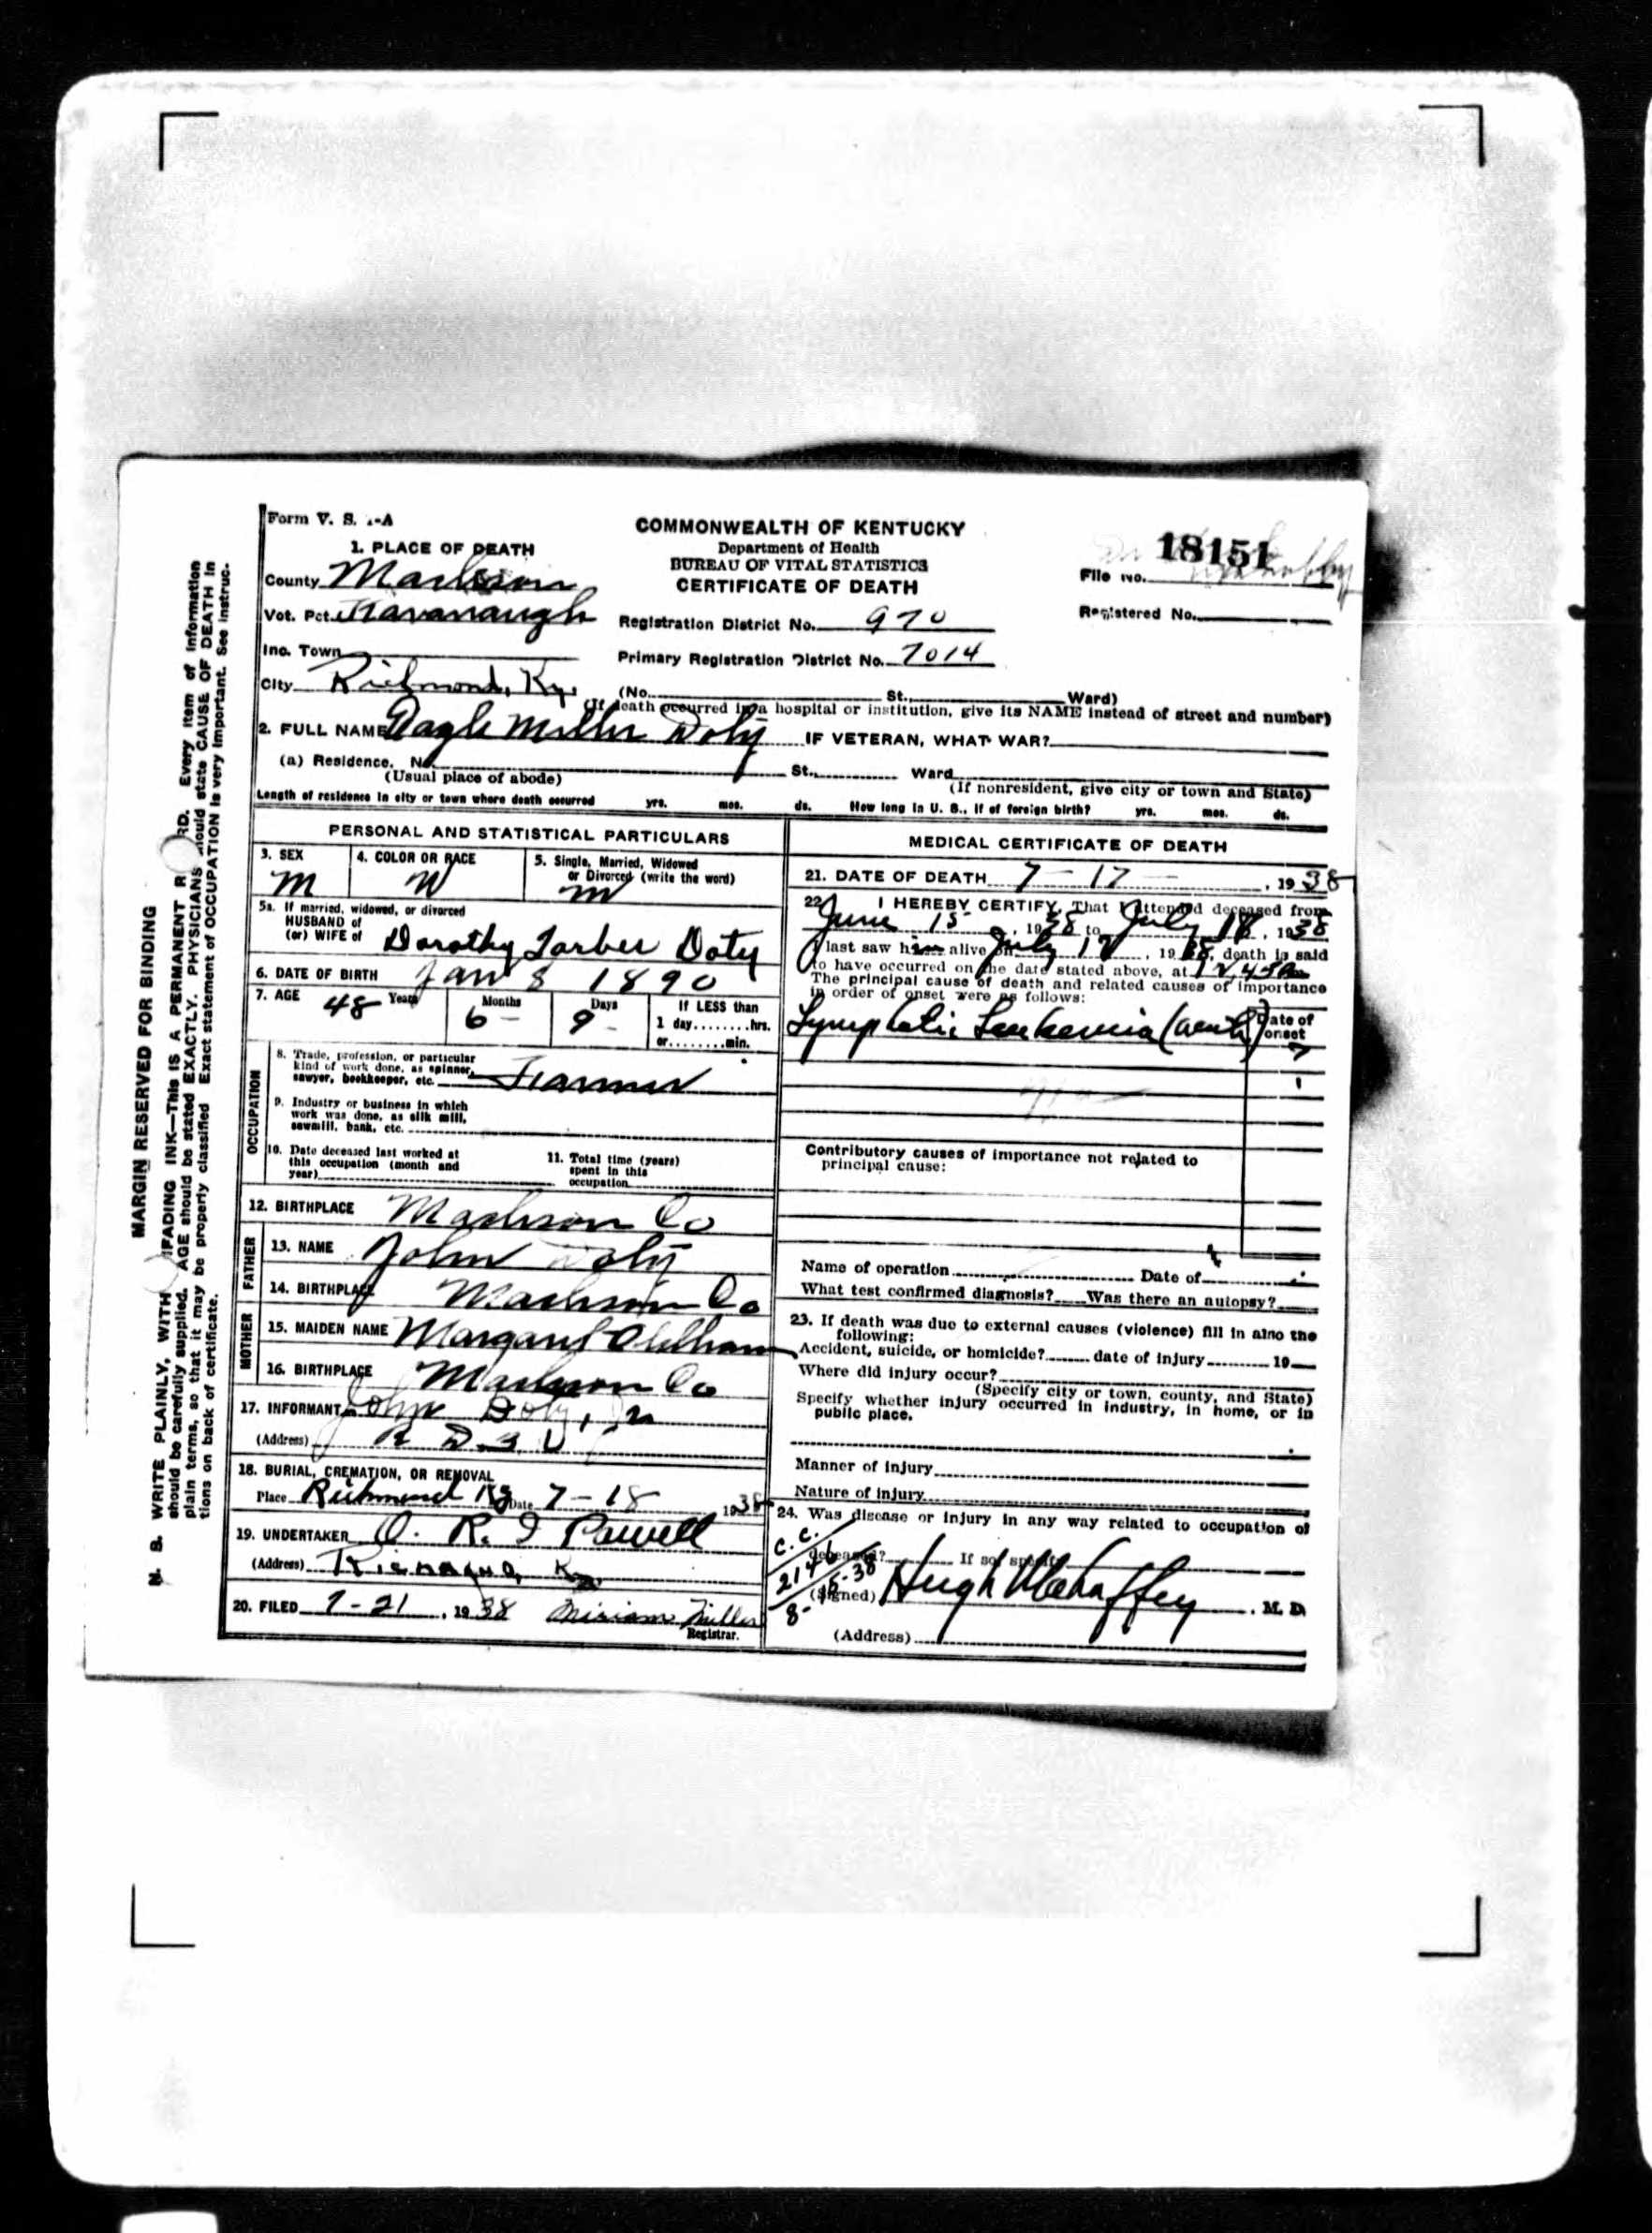 Form V. S. 1-A
COMMONWEALTH OF KENTUCKY
Department of Health
BUREAU OF VITAL STATISTICS
CERTIFICATE OF DEATH
18151
File No.
Registered No.
1. PLACE OF DEATH
County Madison
Vot. Pct. Kavanaugh
Registration District No. 970
Inc. Town
Primary Registration District No. 7014
City Richmond, Ky.
(No. St. Ward)
(If death occurred in a hospital or institution, give its NAME instead of street and number)
2. FULL NAME Miller Doty IF VETERAN, WHAT WAR?
(a) Residence. No. St. Ward
(Usual place of abode) (If nonresident, give city or town and State)
Length of residence in city or town where death occurred yrs. mos. ds. How long in U. S., if of foreign birth? yrs. mos. ds.
PERSONAL AND STATISTICAL PARTICULARS
3. SEX
M
4. COLOR OR RACE
W
5. Single, Married, Widowed
or Divorced (write the word)
m
5a. If married, widowed, or divorced
HUSBAND of
(or) WIFE of Dorothy Doty
6. DATE OF BIRTH Jan 8 1890
7. AGE 48 Years 6 Months 9 Days If LESS than
1 day........hrs.
or........min.
OCCUPATION
8. Trade, profession, or particular
kind of work done, as spinner,
sawyer, bookkeeper, etc. Farmer
9. Industry or business in which
work was done, as silk mill,
sawmill, bank, etc.
10. Date deceased last worked at
this occupation (month and
year)
11. Total time (years)
spent in this
occupation
12. BIRTHPLACE Madison Co
FATHER
13. NAME John Doty
14. BIRTHPLACE Madison Co
MOTHER
15. MAIDEN NAME Margaret Oldham
16. BIRTHPLACE Madison Co
17. INFORMANT John Doty, Jr
(Address) R D 3
18. BURIAL, CREMATION, OR REMOVAL
Place Richmond Ky Date 7-18 1938
19. UNDERTAKER O. R. Powell
(Address) Richmond, Ky
20. FILED 7-21, 1938 Miriam Miller
Registrar.
MEDICAL CERTIFICATE OF DEATH
21. DATE OF DEATH 7-17-, 1938
22. I HEREBY CERTIFY, That I attended deceased from
June 15, 1938 to July 18, 1938
I last saw him alive on July 17, 1938, death is said
to have occurred on the date stated above, at 12,45 am
The principal cause of death and related causes of importance
in order of onset were as follows:
Lymphatic Leukemia (acute)
Date of
onset
?
Contributory causes of importance not related to
principal cause:
Name of operation Date of
What test confirmed diagnosis? Was there an autopsy?
23. If death was due to external causes (violence) fill in also the
following:
Accident, suicide, or homicide? date of injury 19
Where did injury occur?
(Specify city or town, county, and State)
Specify whether injury occurred in industry, in home, or in
public place.
Manner of injury
Nature of injury
24. Was disease or injury in any way related to occupation of
deceased? If so, specify
C.C.
2146
8-15-38
(Signed) Hugh Mahaffey, M. D.
(Address)
MARGIN RESERVED FOR BINDING
N. B. WRITE PLAINLY, WITH UNFADING INK—THIS IS A PERMANENT RECORD. Every item of information
should be carefully supplied. AGE should be stated EXACTLY. PHYSICIANS should state CAUSE OF DEATH in
plain terms, so that it may be properly classified. Exact statement of OCCUPATION is very important. See instruc-
tions on back of certificate.